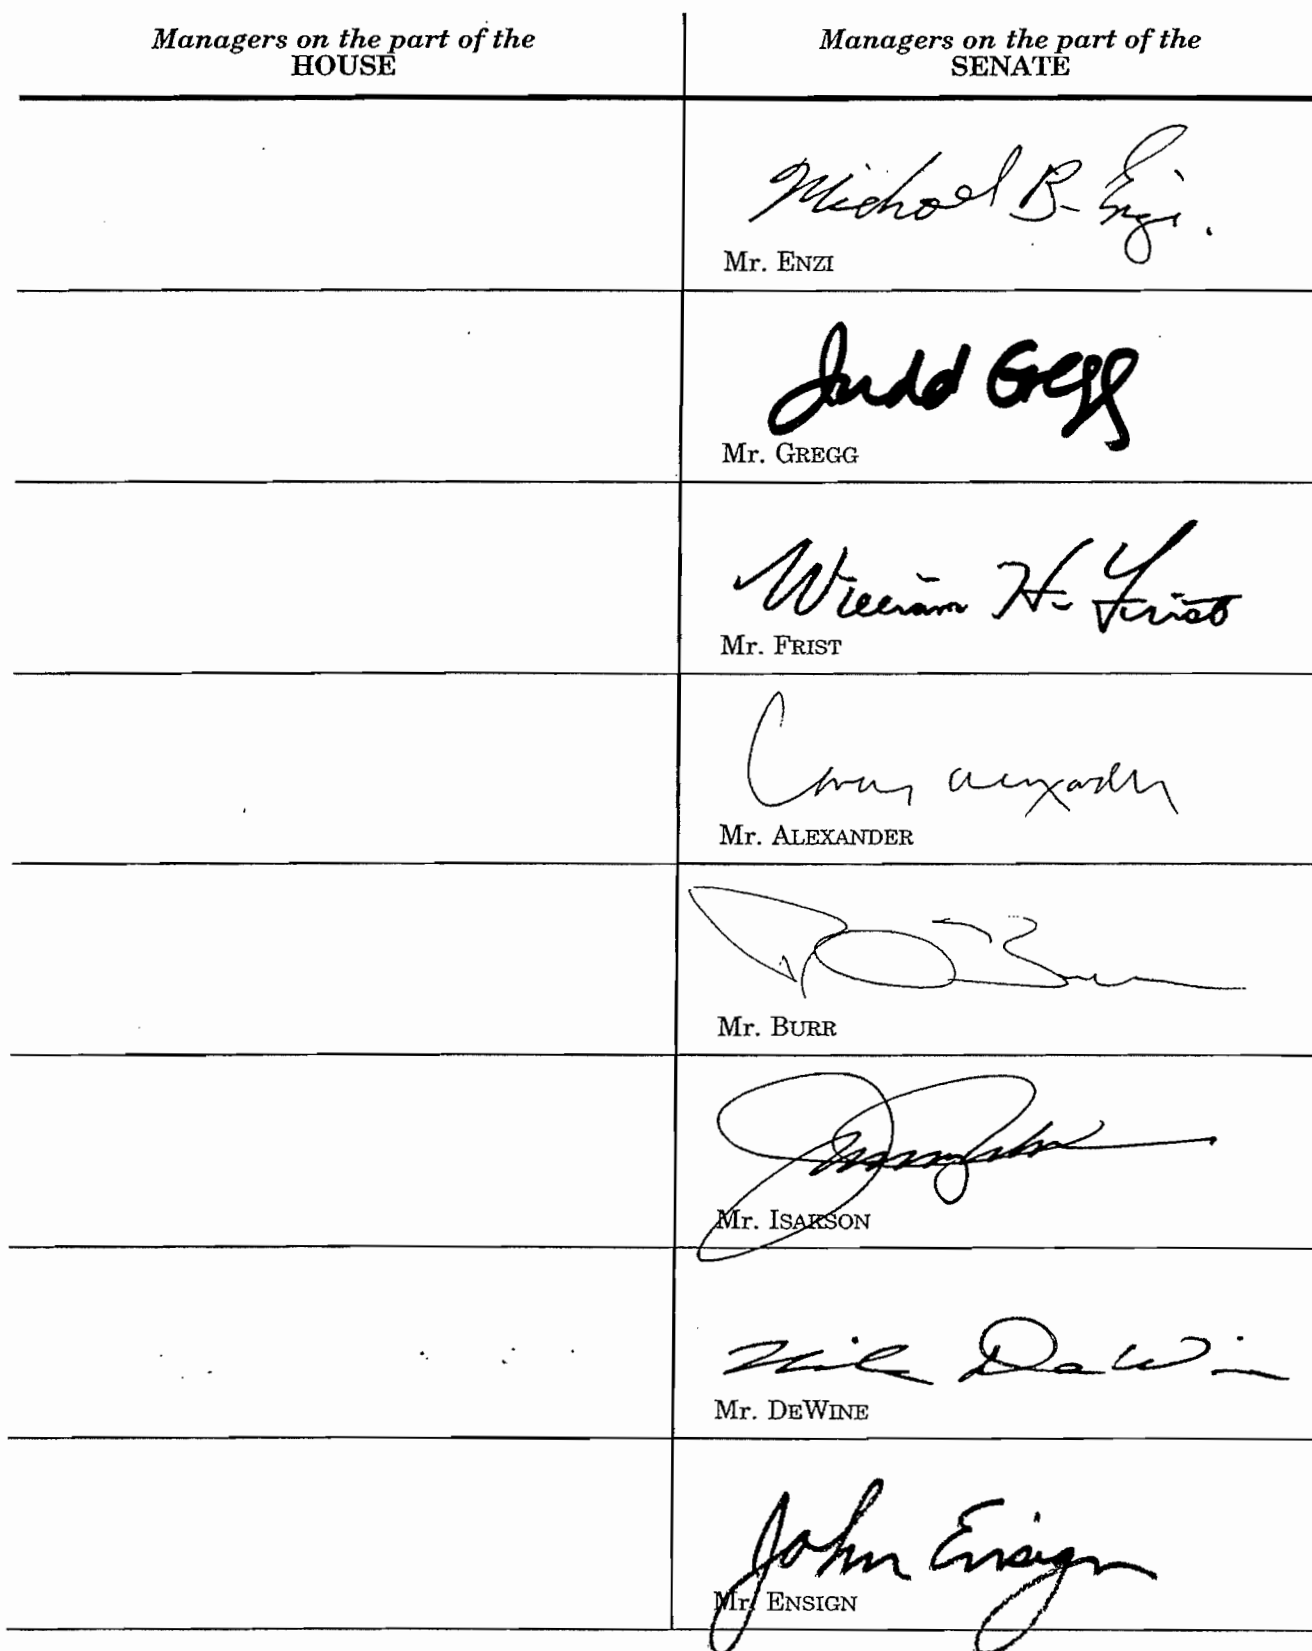 Managers on the part of the
HOUSE
Managers on the part of the
SENATE
Michael B. Enzi
Mr. ENZI
Judd Gregg
Mr. GREGG
William H. Frist
Mr. FRIST
Alexander
Mr. ALEXANDER
Burr
Mr. BURR
Mr. ISAKSON
Mike DeWine
Mr. DEWINE
John Ensign
Mr. ENSIGN